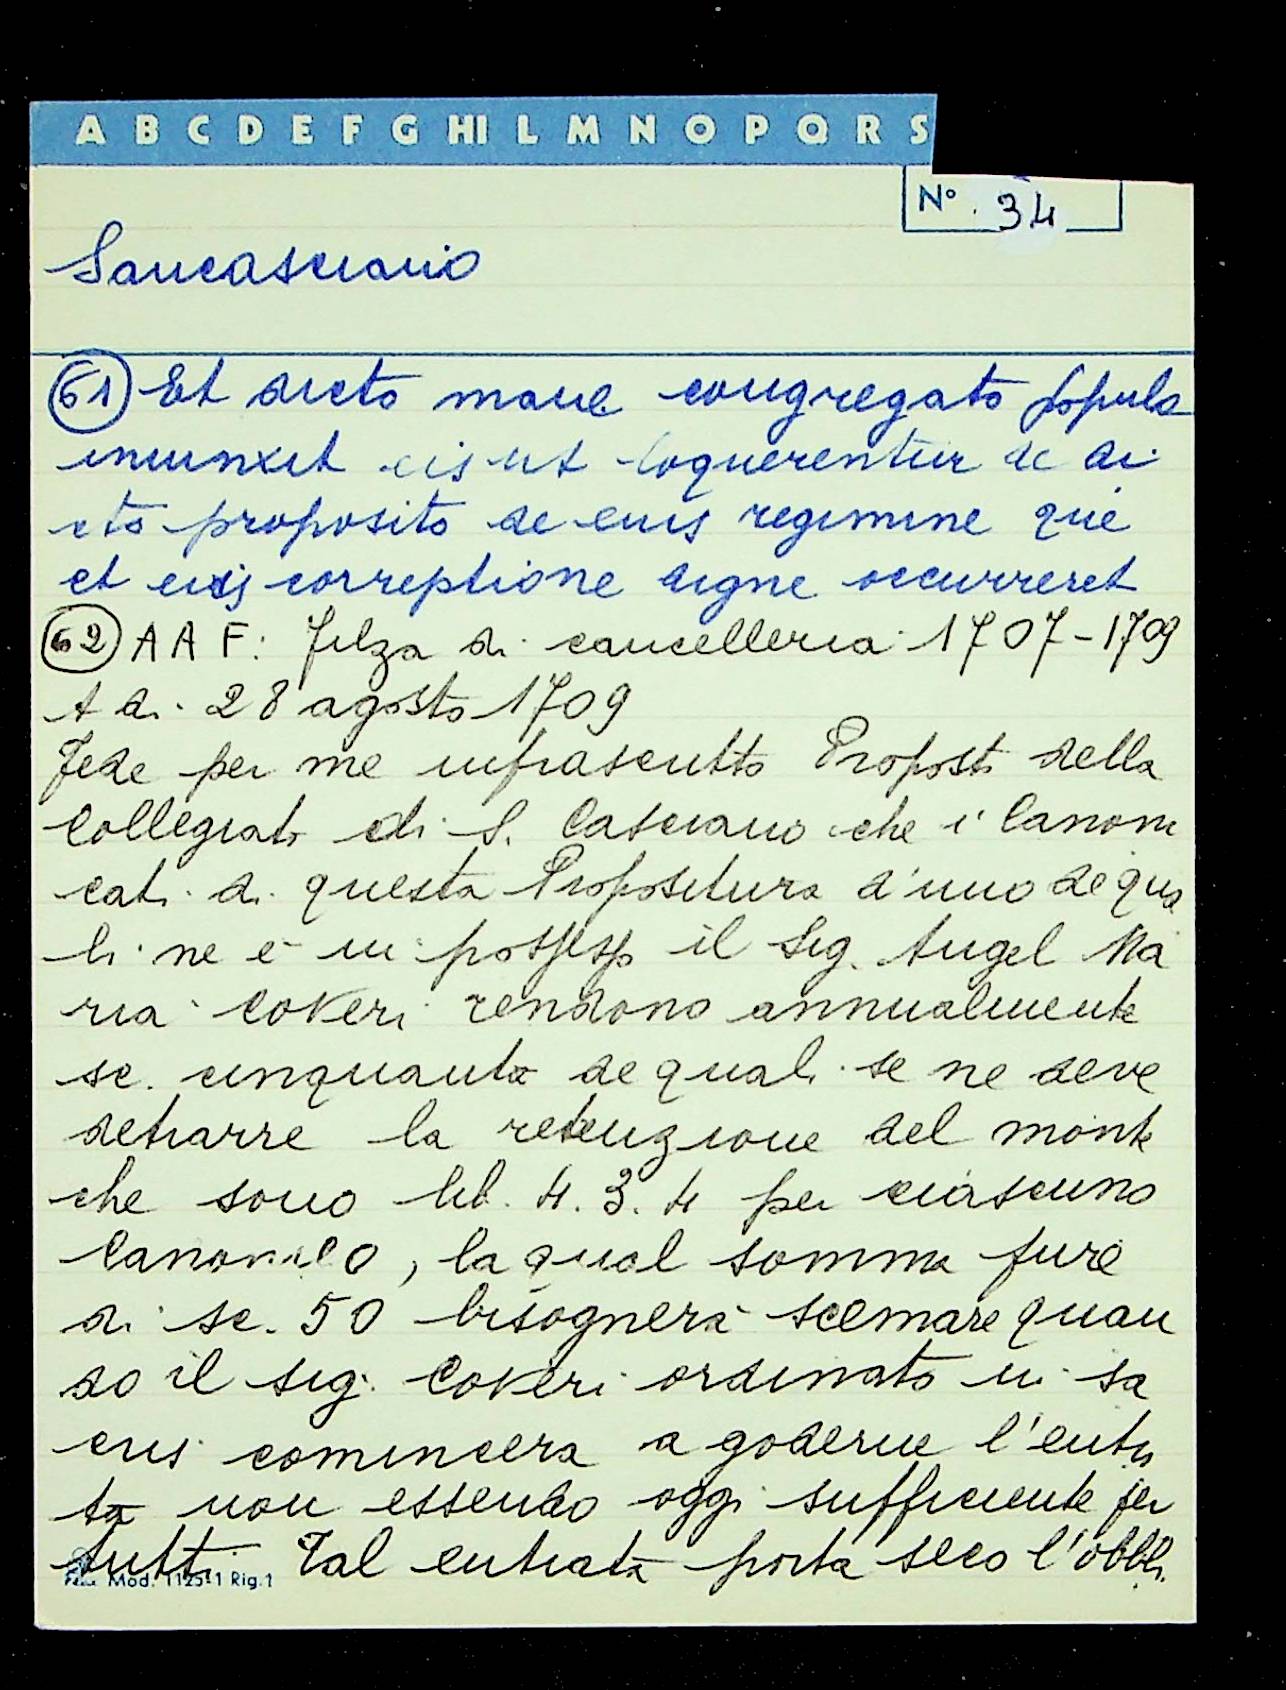 A B C D E F G HI L M N O P Q R S
N° 34
Sancasciano
61) Et dicto mane congregato populo
iniunxit eis ut loquerentur de di
cto proposito de eius regimine que
et eius correptione digne occurreret
62) AAF: Filza di cancelleria 1707-1709
A di 28 agosto 1709
Fede per me infrascritto Proposto della
Collegiata di S. Casciano che i Canoni
cati di questa Propositura d'uno de qua
li ne è in possesso il Sig. Angel Ma
ria Coveri rendono annualmente
sc. cinquanta de quali se ne deve
detrarre la retenzione del monte
che sono lib. 4.3.4 per ciascuno
Canonico, la qual somma pure
di sc. 50 bisognerà scemare quan
do il sig. Coveri ordinato in sa
cris comincerà a goderne l'entra
ta non essendo oggi sufficiente per
tutti. Tal entrata porta seco l'obbli
Mod. 1125-1 Rig.1